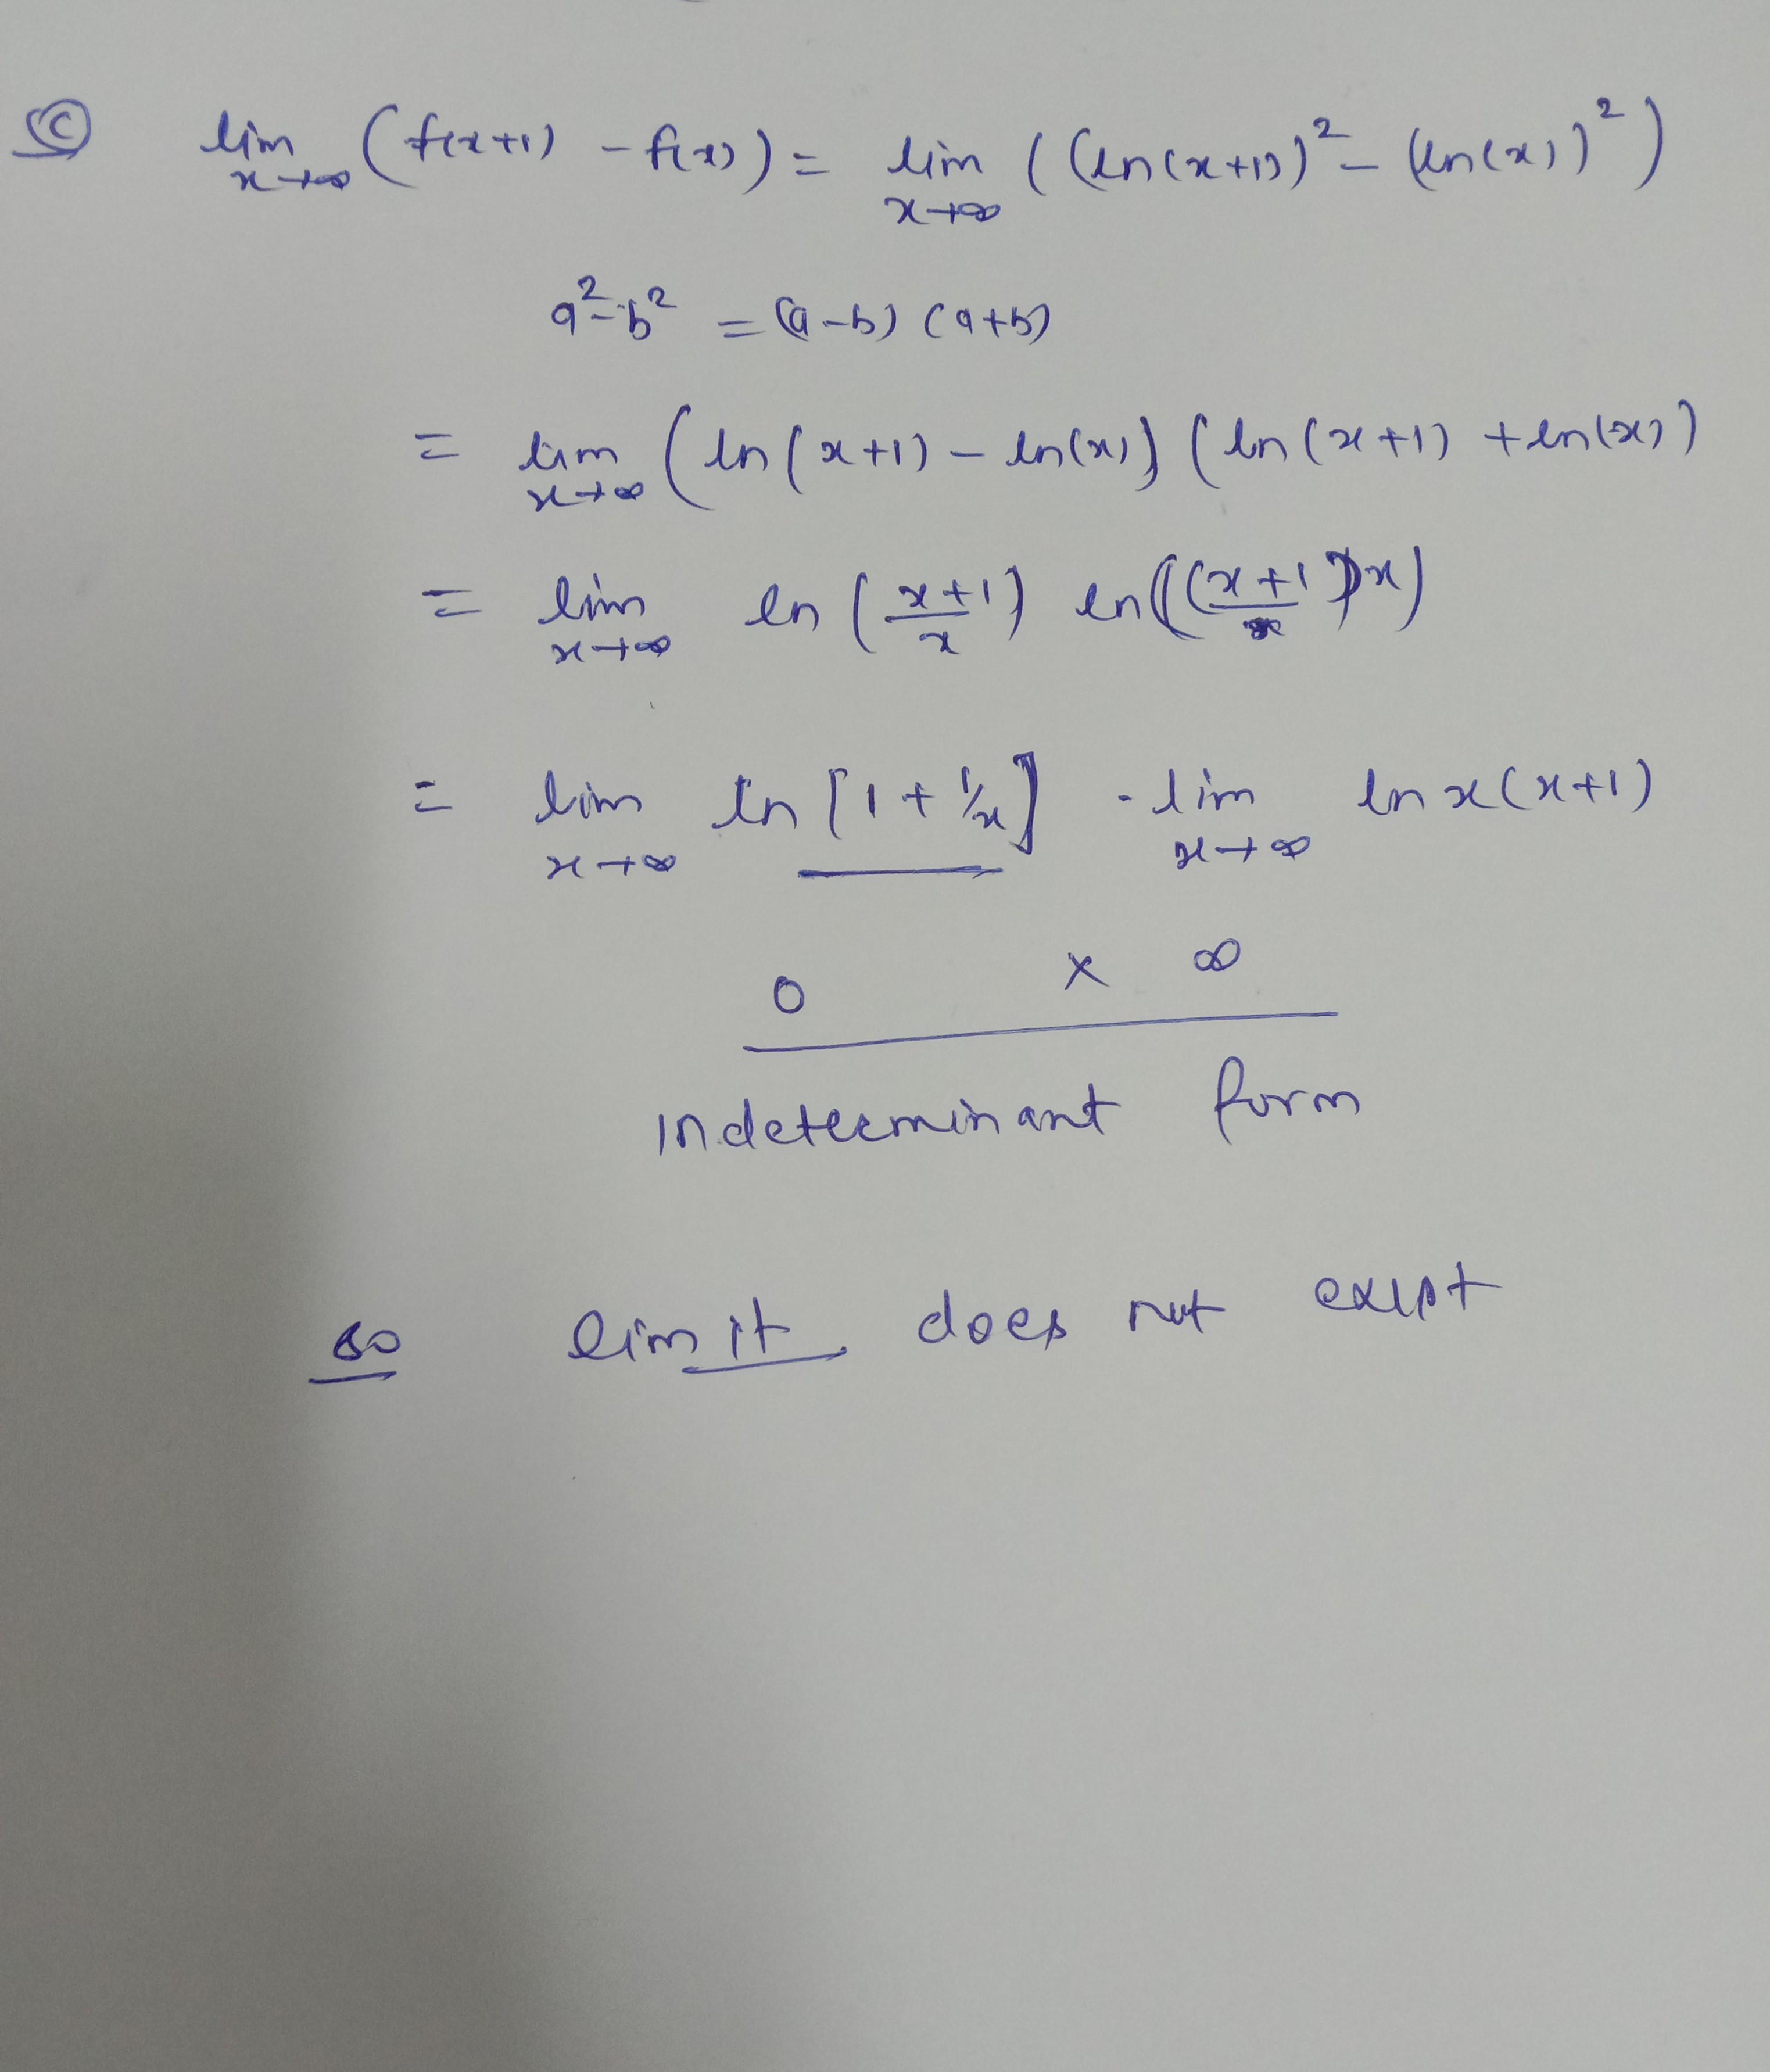 (c) lim x→∞ (f(x+1) - f(x)) = lim x→∞ ((ln(x+1))² - (ln(x))²)
a² - b² = (a-b) (a+b)
= lim x→∞ (ln(x+1) - ln(x)) (ln(x+1) + ln(x))
= lim x→∞ ln(x+1/x) ln((x+1)x)
= lim x→∞ ln[1 + 1/x] · lim x→∞ ln x(x+1)
0 × ∞
Indeterminant form
so limit does not exist